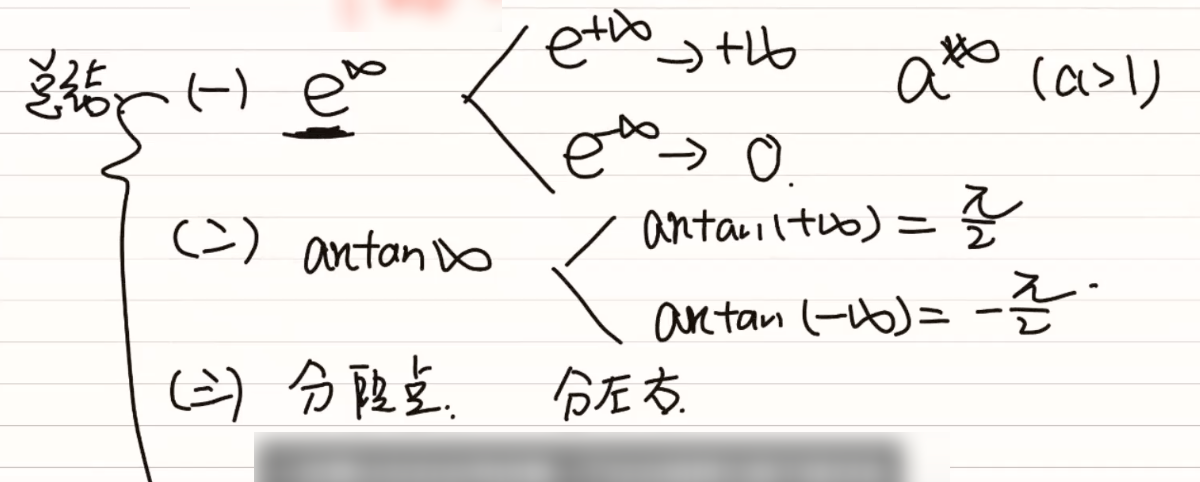 e^{+∞} → +∞
总结 (一) e^∞ a^{+∞} (a>1)
e^{-∞} → 0.
arctan(+∞) = π/2
(二) arctan∞
arctan(-∞) = -π/2.
(三) 分段点. 分左右.